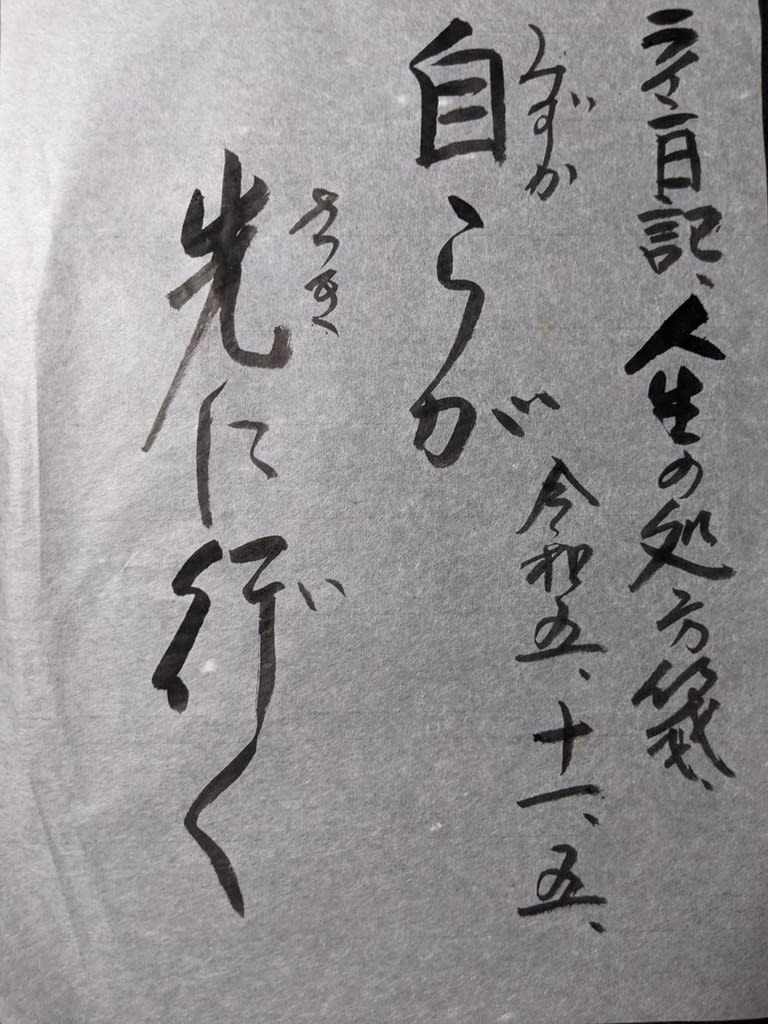 日記、人生の処方箋、
みずか
令和五、十一、五、
自らが
さき
い
先に行く